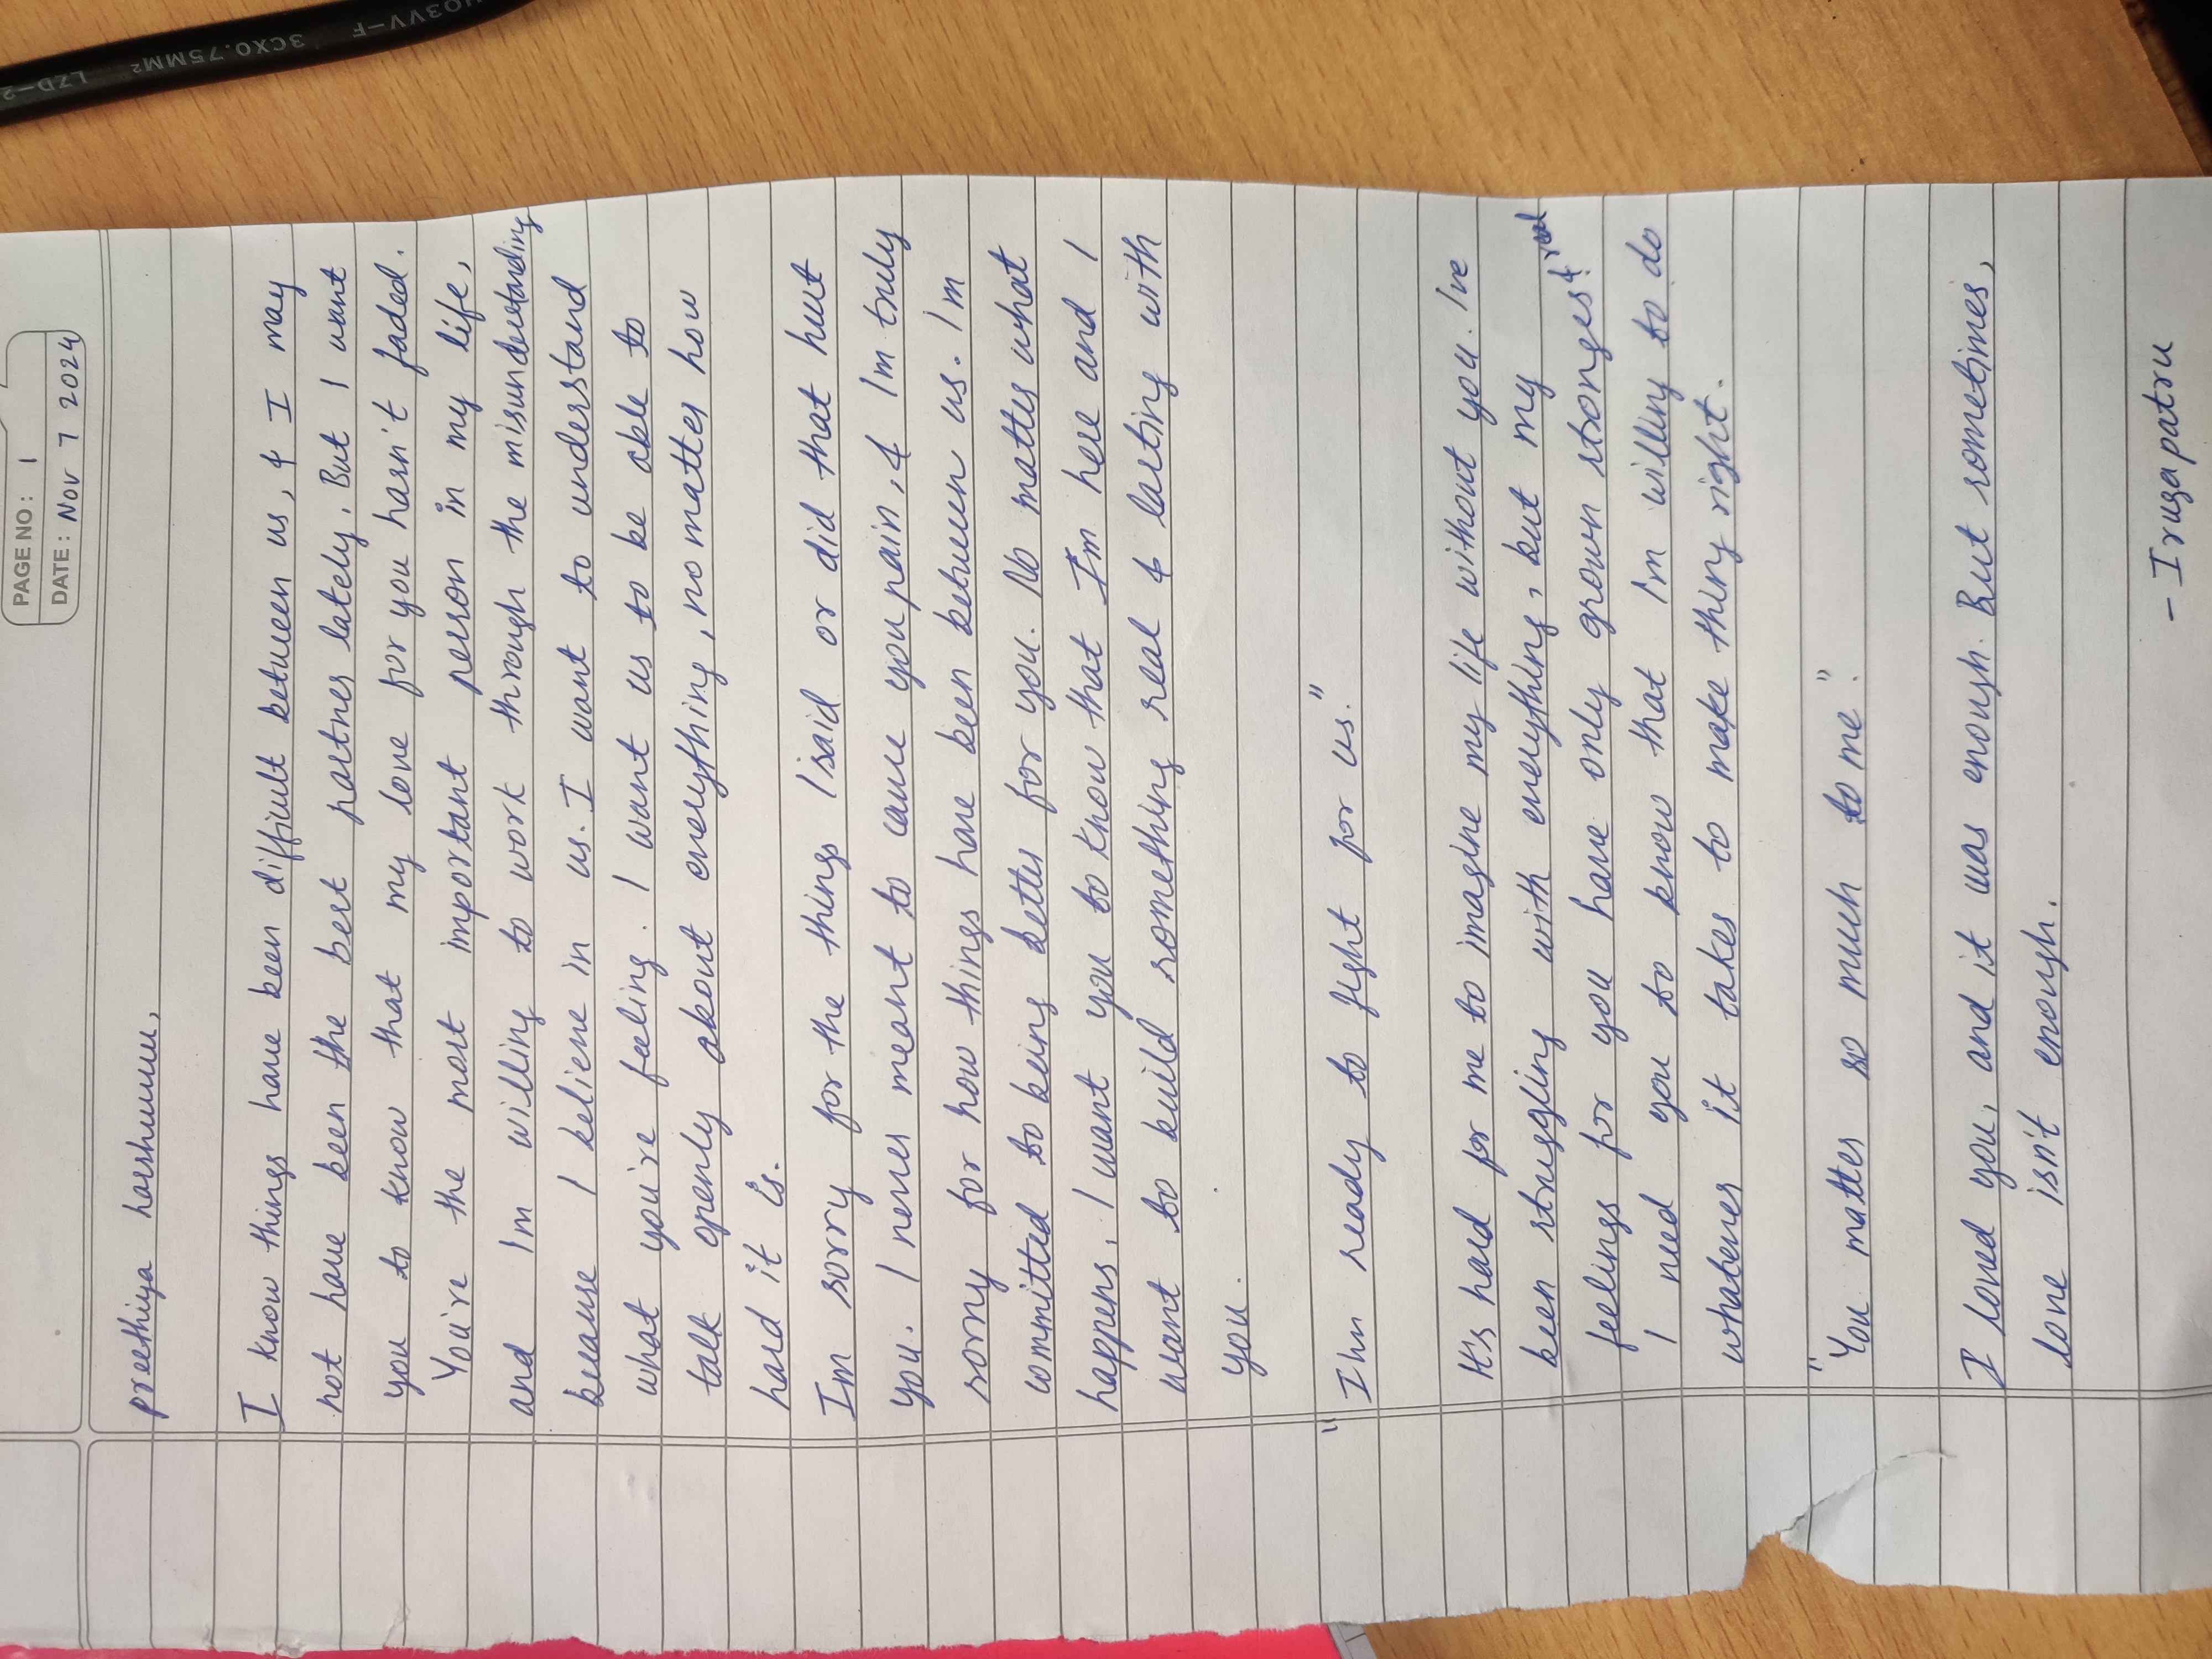 PAGE NO : 1
DATE : Nov 7 2024
preethiya harshuuuu,
I know things have been difficult between us, & I may
not have been the best partner lately. But I want
you to know that my love for you hasn't faded.
You're the most important person in my life,
and Im willing to work through the misunderstanding
because I believe in us. I want to understand
what you're feeling. I want us to be able to
talk openly about everything, no matter how
hard it is.
Im sorry for the things I said or did that hurt
you. I never meant to cause you pain, & Im truly
sorry for how things have been between us. Im
committed to being better for you. No matter what
happens, I want you to know that I'm here and I
want to build something real & lasting with
you.
"I'm ready to fight for us."
It's hard for me to imagine my life without you. I've
been struggling with everything, but my
feelings for you have only grown stonger & real.
I need you to know that I'm willing to do
whatever it takes to make thing right.
"You matter so much to me".
I loved you, and it was enough. But sometimes,
love isn't enough.
- Irugapatru
3CX0.75MM²